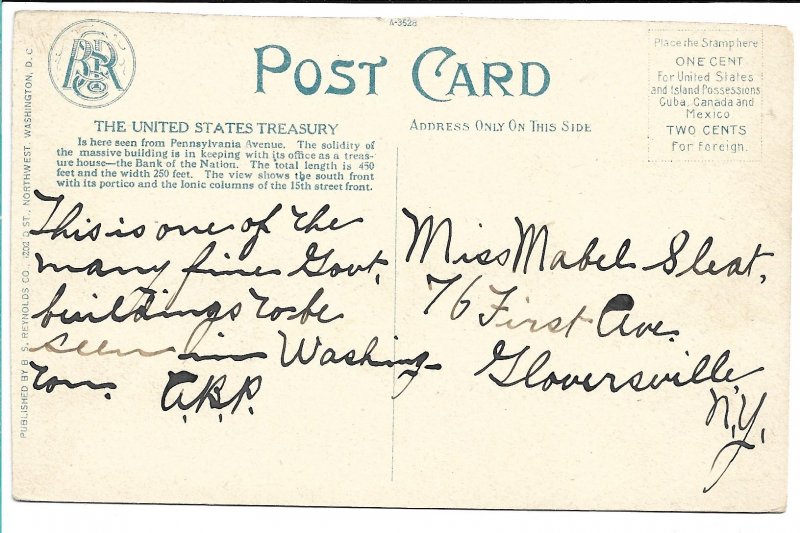 A-3628
POST CARD
Place the Stamp here
ONE CENT
For United States
and Island Possessions
Cuba, Canada and
Mexico
TWO CENTS
For Foreign.
THE UNITED STATES TREASURY
Is here seen from Pennsylvania Avenue. The solidity of
the massive building is in keeping with its office as a treas-
ure house—the Bank of the Nation. The total length is 450
feet and the width 250 feet. The view shows the south front
with its portico and the Ionic columns of the 15th street front.
ADDRESS ONLY ON THIS SIDE
This is one of the
many fine Govt.
buildings to be
seen in Washing-
ton. A.B.P.
Miss Mabel Sleat,
76 First Ave.
Gloversville
N.Y.
PUBLISHED BY B. S. REYNOLDS CO., 1202 D ST., NORTHWEST, WASHINGTON, D. C.